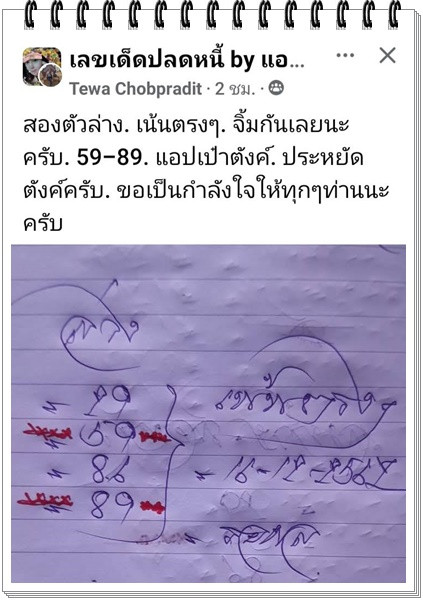 เลขเด็ดปลดหนี้ by แอ...
Tewa Chobpradit · 2 ชม. ·
สองตัวล่าง. เน้นตรงๆ. จิ้มกันเลยนะ
ครับ. 59–89. แอปเป๋าตังค์. ประหยัด
ตังค์ครับ. ขอเป็นกำลังใจให้ทุกๆท่านนะ
ครับ
ล่าง
เน้นตรงๆ
59
88
= 16-12-2567
89